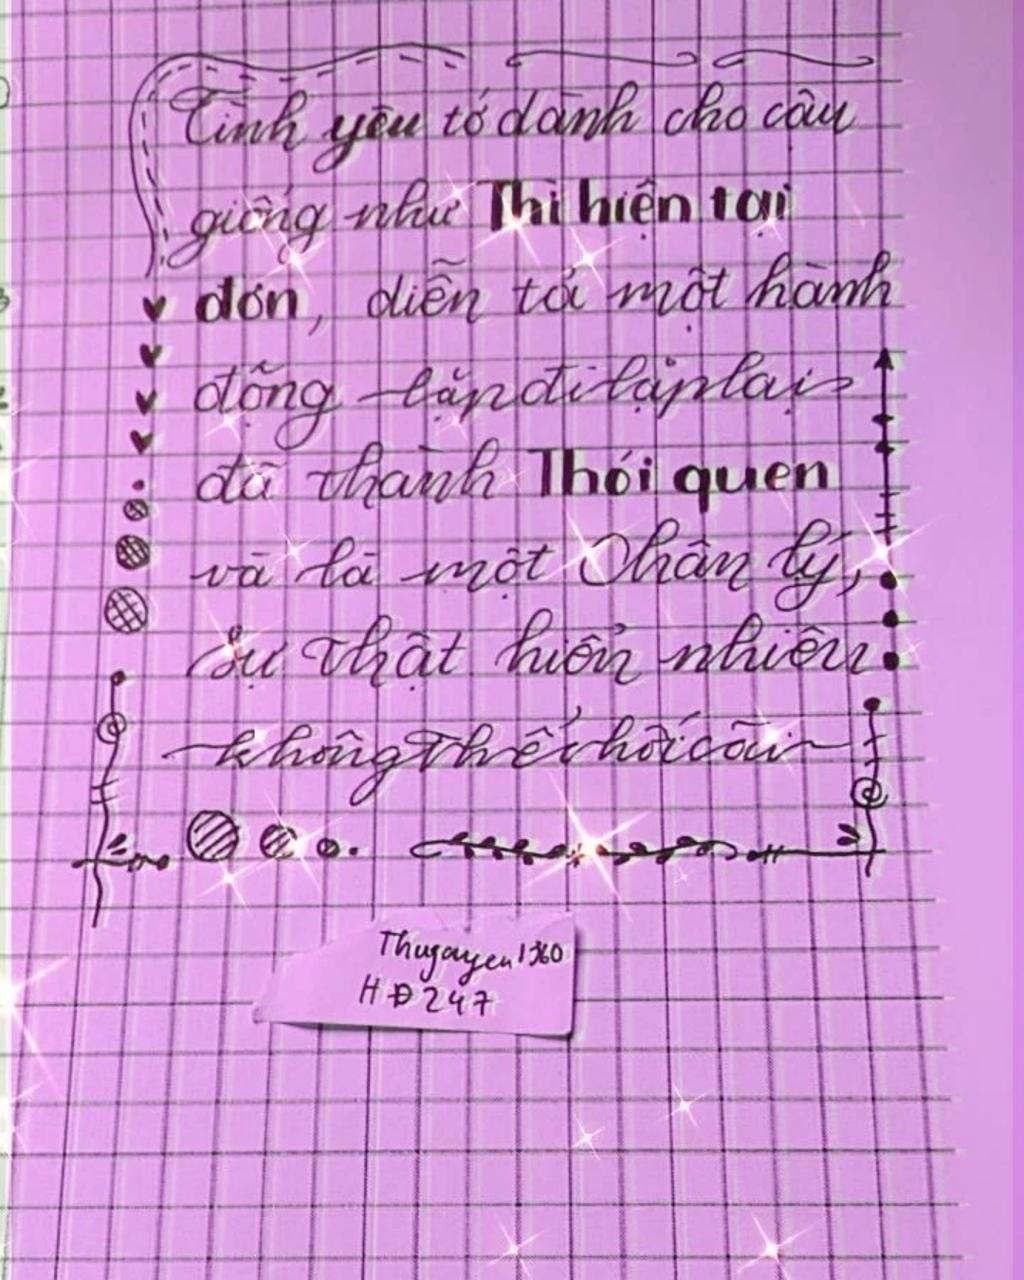 Tình yêu tớ dành cho cậu
giống như Thì hiện tại
đơn, diễn tả một hành
động lặp đi lặp lại
đã thành Thói quen
và là một Chân lý,
sự thật hiển nhiên
không thể chối cãi
Thugayen1360
HĐ247